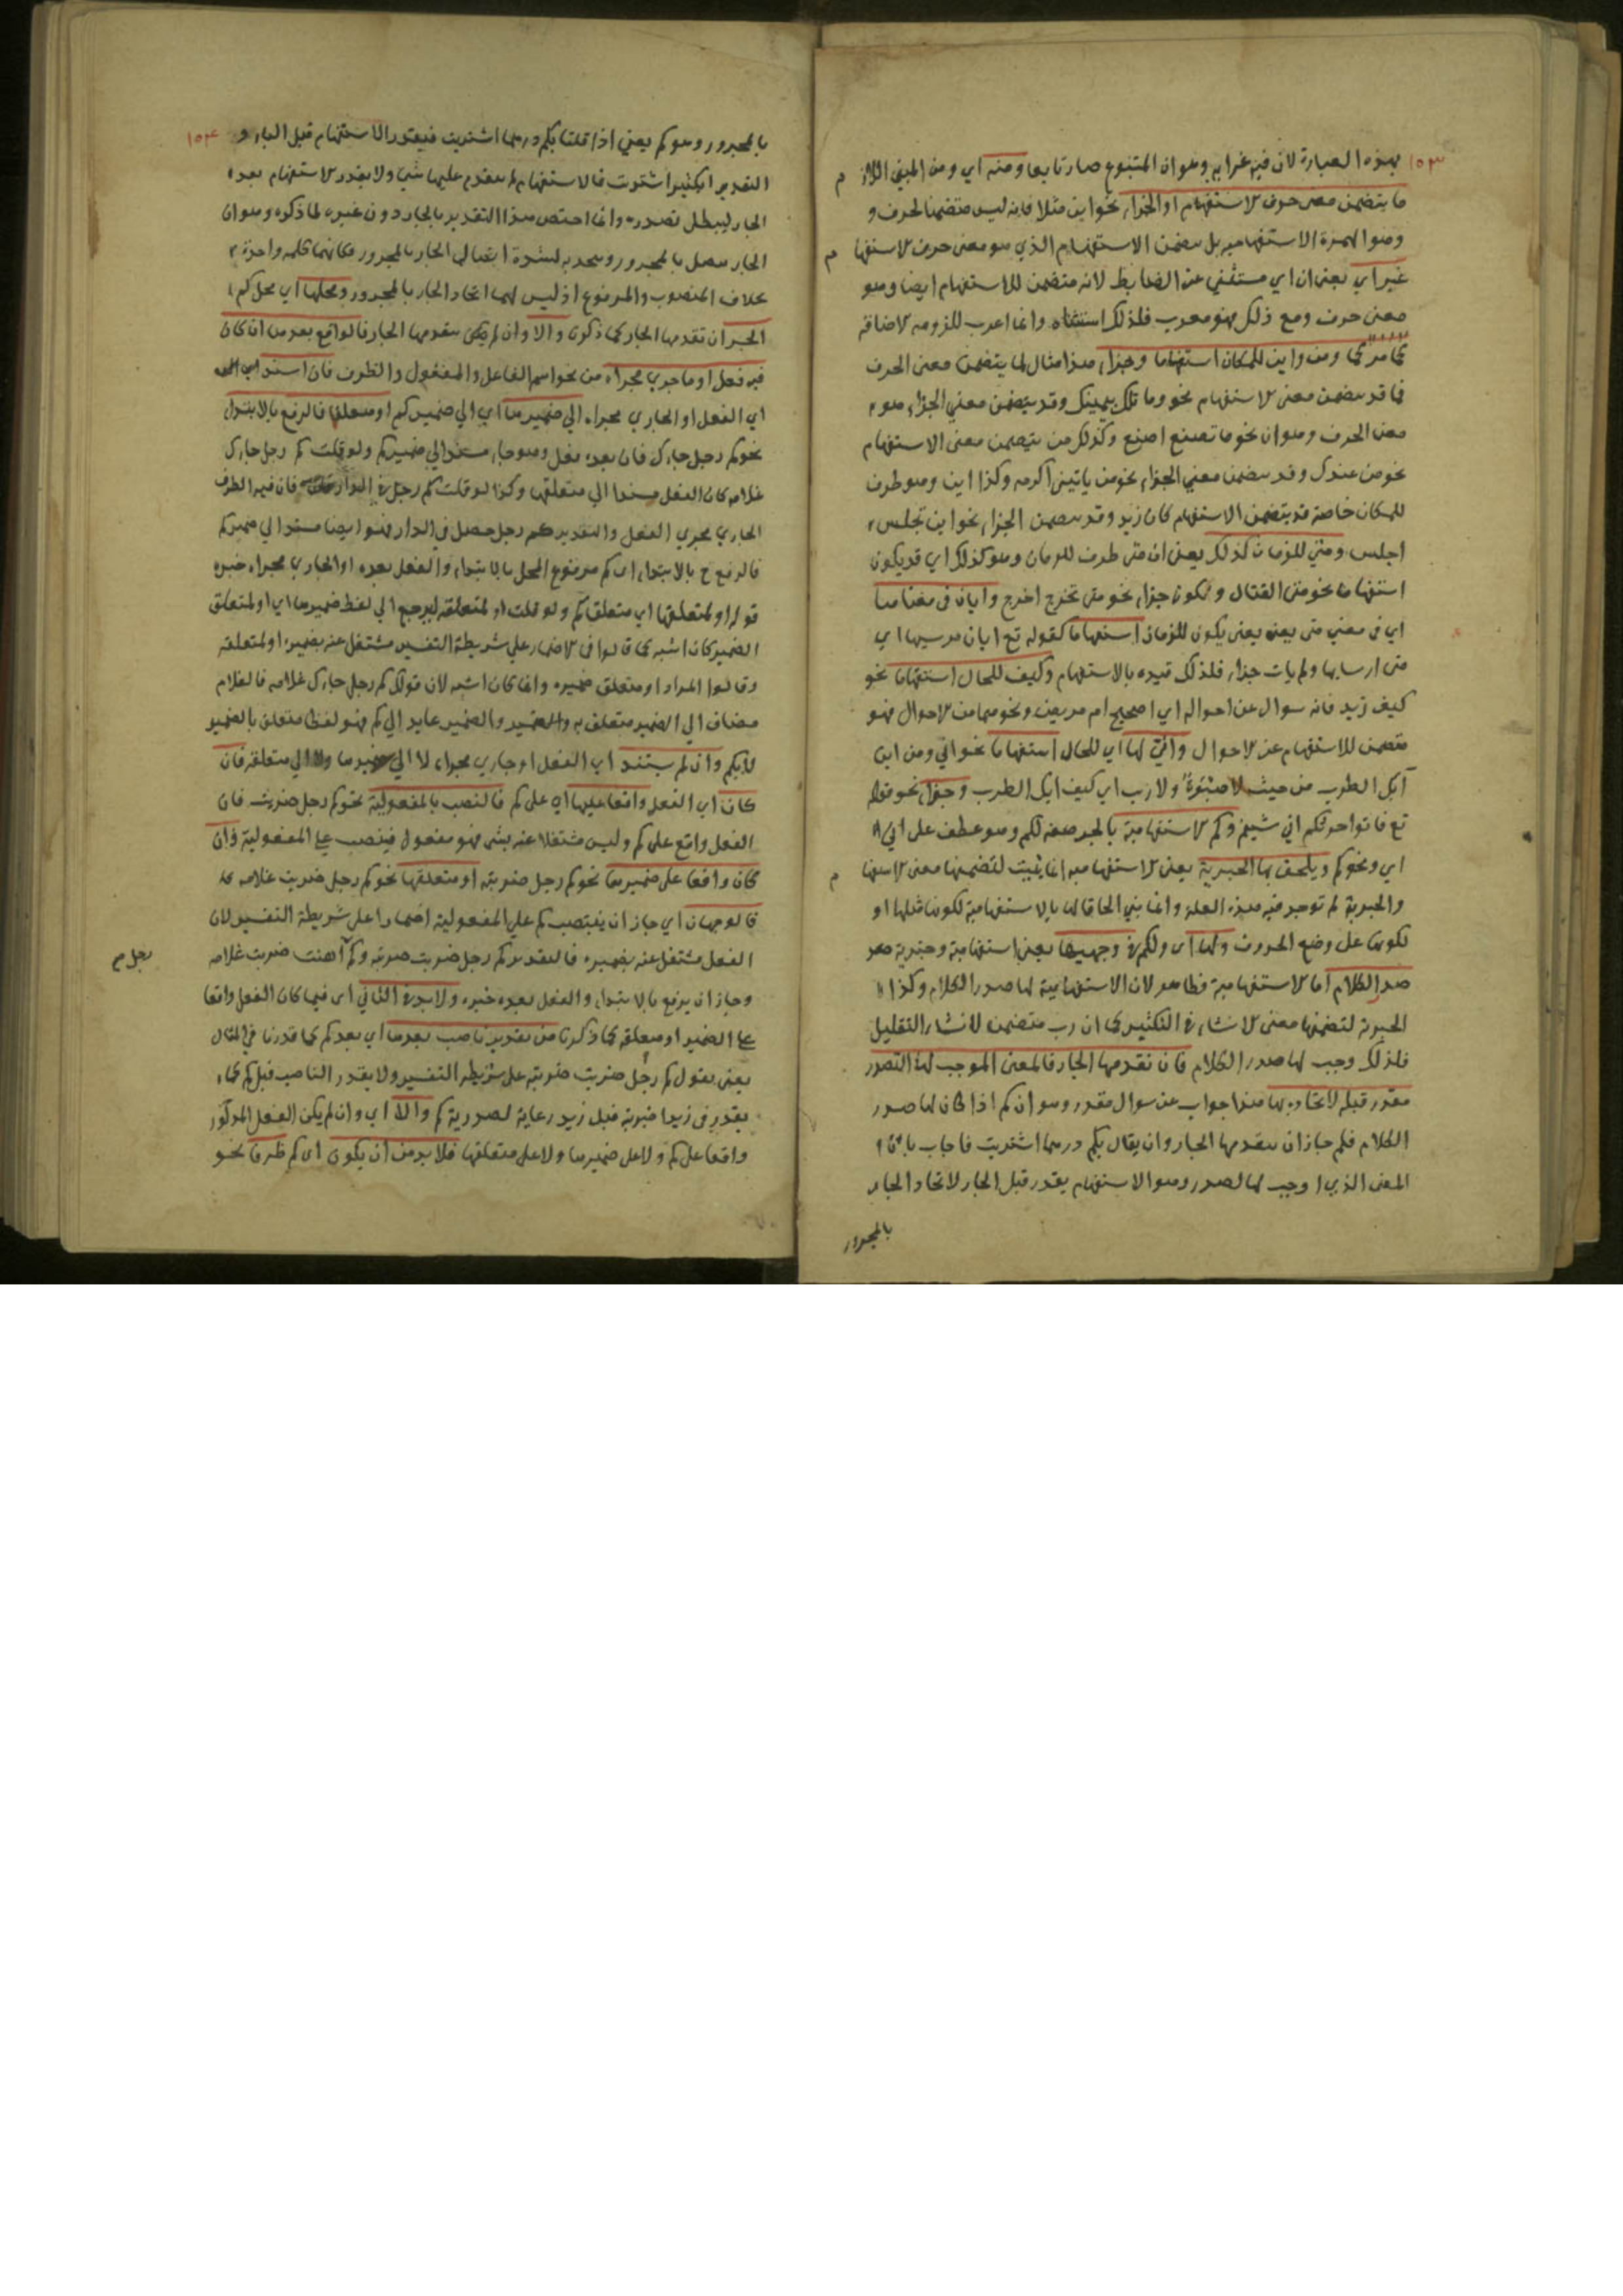 ١٥٣
بهذه العبارة لان فيه غرابه وهو ان المتبوع صار تابعا ومنه اي ومن المبني اللاز م
ما يتضمن معنى حرف الاستفهام او الجزاء نحو اين مثلا فانه ليس متضمنا لحرف و
وهو الهمزة الاستفهاميه بل يتضمن الاستفهام الذي هو معنى حرف الاستفها م
غير اي يعني ان اي مستثني عن الضابط لانه متضمن للاستفهام ايضا وهو
معنى حرف ومع ذلك فهو معرب فلذلك استثناه وانما اعرب للزومه الاضافة
كما مر كما ومن واين للمكان استفهاما وجزاء هذا مثال لما يتضمن معنى الحرف
فما قد يتضمن معنى الاستفهام نحو وما تلك بيمينك وقد يتضمن معني الجزاء هو
معنى الحرف وهو ان نحو ما تصنع اصنع وكذلك من يتضمن معنى الاستفهام
نحو من عندك وقد يتضمن معني الجزاء نحو من ياتيني اكرمه وكذا اين وهو ظرف
للمكان خاصة قد يتضمن الاستفهام كان زيد وقد يتضمن الجزاء نحو اين تجلس
اجلس ومتي للزمان كذلك يعنى ان متى ظرف للزمان وهو كذلك اي قد يكون
استفهاما نحو متى القتال ويكون جزاء نحو متى تخرج اخرج وايان في معناها
اي في معني متى يعنه يعنى يكون للزمان استفهاما كقوله تع ايان مرسيها اي
متى ارسايها ولم يات جزاء فلذلك قيده بالاستفهام وكيف للحال استفهاما نحو
كيف زيد فانه سوال عن احواله اي اصحيح ام مريض ونحوهما من الاحوال فهو
متضمن للاستفهام عن الاحوال وانّي لها اي للحال استفهاما نحو انّي ومن اين
آبك الطرب من حيث لا صَبْوَةٌ ولا رب اي كيف ابك الطرب وجزاء نحو قوله
تع فاتوا حرثكم اني شيتم وكم الاستفهامية بالجر صفة لكم وهو عطف على اني
اي ونحو كم ويلحق بها الخبرية يعنى الاستفهاميه انما يثبت لتضمنها معنى الاستفها م
والخبرية لم توجد فيه هذه العلة وانما بني الحاقا لها بالاستفهامية لكونها مثلها او
لكونها على وضع الحروف ولها اى ولكم في وجهيها يعنى استفهامية وخبرية صدر
صدر الكلام اما الاستفهامية فظاهر لان الاستفهامية لها صدر الكلام وكذا
الخبرية لتضمنها معنى الانشاء في التكثير كما ان رب متضمن لانشاء التقليل
فلذلك وجب لها صدر الكلام فان تقدمها الجار فالمعنى الموجب لهذا التصدر
مقدر قبله لاتحاده بها هذا جواب عن سوال مقدر وهو ان كم اذا كان لها صدر
الكلام فلم جاز ان يتقدمها الجار وان يقال بكم درهما اشتريت فاجاب بان
المعنى الذي اوجب لها الصدر وهو الاستفهام يقدر قبل الجار لاتحاد الجار
بالمجرور
١٥٤
بالمجرور وهو كم يعني اذا قلنا بكم درهما اشتريت فيقدر الاستفهام قبل الباء و
التقدير ابكثير اشتريت فالاستفهام لم يتقدم عليها شي ولا يقدر الاستفهام بعده
الجار ليبطل تصدره وانما اختص هذا التقدير بالجار دون غيره لما ذكره وهو ان
الجار يتصل بالمجرور ويتحد به لشدة اتصال الجار بالمجرور فكانهما كلمه واحدة
بخلاف المنصوب والمرفوع اذ ليس لهما اتحاد الجار بالمجرور ومحلها اي محل كم
الجر ان تقدمها الجار كما ذكرنا والا وان لم يكن يتقدمها الجار فالواقع بعدها ان كان
فيه فعل او ما جري مجراه من نحو اسم الفاعل والمفعول والظرف فان استند
اي الفعل او الجاري مجراه الي ضميرها اي الي ضمير كم او متعلقها فالرفع بالابتداء
نحو كم رجل جاءك فان بعده فعل وهو جاء مسند الي ضمير كم ولو قلت كم رجل جاءك
غلامه كان الفعل مسندا الي متعلقها وكذا لو قلت كم رجل في الدار فان فيه الظرف
الجاري مجري الفعل والتقدير كم رجل حصل في الدار فهو ايضا مسند الي ضمير كم
فالرفع ح بالابتداء اى كم مرفوع المحل بالابتداء والفعل بعده او الجاري مجراه خبره
قوله او لمتعلقها اي متعلق كم ولو قلت او لمتعلقه ليرجع الي لفظ ضميرها اي او لمتعلق
الضمير كان اشبه كما قالوا في الاضمار علي شريطة التفسير مشتغل عنه بضميره او لمتعلقه
وقالوا المراد او متعلق ضميره وانما كان اشبه لان قولك كم رجل جاءك غلامه فالغلام
مضاف الي الضمير متعلق به والضمير والضمير عايد الي كم فهو لفظا متعلق بالضمير
لا بكم وان لم يستند اي الفعل او جاري مجراه لا الي ضميرها ولا الي متعلقه فان
كان اي الفعل واقعا عليها اي على كم فالنصب بالمفعولية نحو كم رجل ضربت فان
الفعل واقع على كم وليس مشتغلا عنه بشي فهو مفعول فينصب على المفعولية وان
كان واقعا على ضميرها نحو كم رجل ضربته او متعلقها نحو كم رجل ضربت غلامه
فالوجهان اي جاز ان ينتصب كم علي المفعولية اضمارا على شريطة التفسير لان
الفعل مشتغل عنه بضميره فالتقدير كم رجل ضربت ضربته وكم اهنت ضربت غلامه
رجل م
وجاز ان يرفع بالابتداء والفعل بعده خبره ولا بد في الثاني اى فيما كان الفعل واقعا
على الضمير او متعلقه كما ذكرنا من تقدير ناصب بعدها اي بعد كم كما قدرنا في المثال
يعنى يقول كم رجل ضربت ضربته على شريطه التفسير ولا يقدر الناصب قبل كم كما
يقدر في زيدا ضربته قبل زيد رعاية لصدرية كم والا اي وان لم يكن الفعل المذكور
واقعا على كم ولا على ضميرها ولا على متعلقها فلا بد من ان يكون اى كم ظرفا نحو